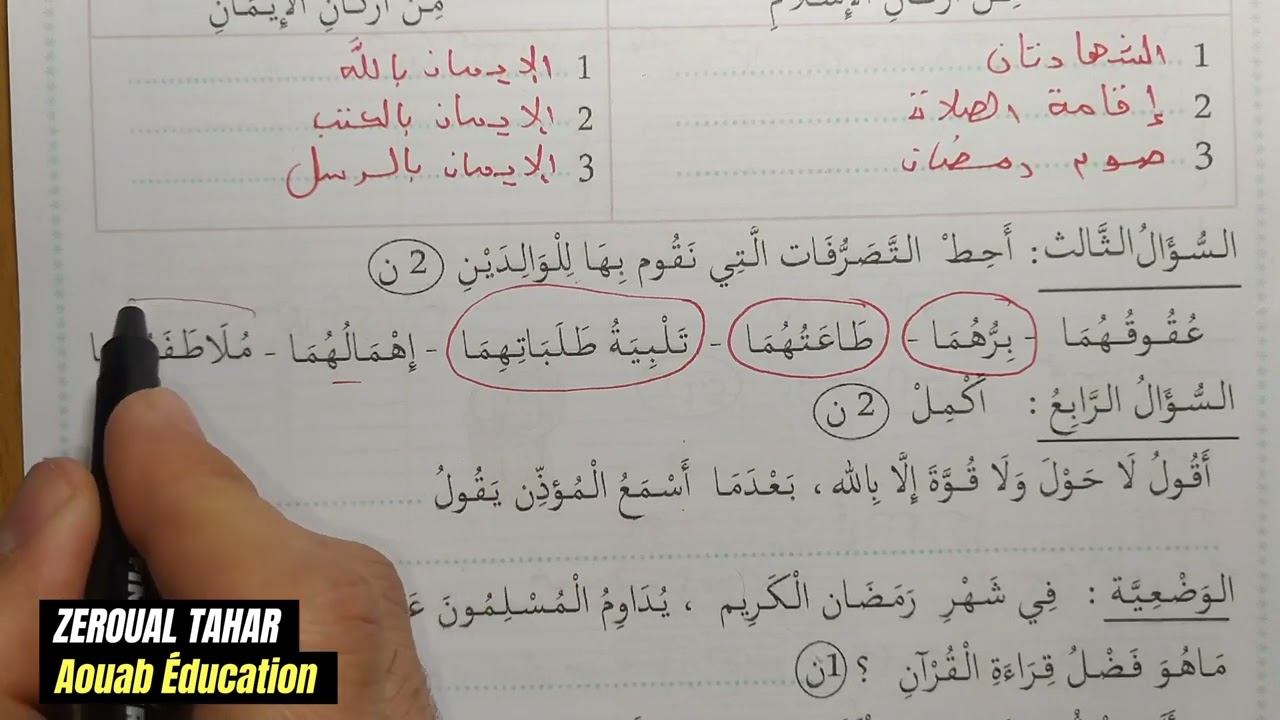 مِنْ أَرْكَانِ الإِسْلَامِ
مِنْ أَرْكَانِ الإِيمَانِ
1 الشهادتان
1 الإيمان باللَّه
2 إقامة الصلاة
2 الإيمان بالكتب
3 صوم رمضان
3 الإيمان بالرسل
السُّؤَالُ الثَّالث : أَحِطْ التَّصَرُّفَات الَّتِي نَقُوم بِهَا لِلْوَالِدَيْنِ 2 ن
عُقُوقُهُمَا - بِرُّهُمَا - طَاعَتُهُمَا - تَلْبِيَةُ طَلَبَاتِهِمَا - إِهْمَالُهُمَا -
السُّؤَالُ الرَّابِعُ : أَكْمِلْ 2 ن
أَقُولُ لَا حَوْلَ وَلَا قُوَّةَ إِلَّا بِالله ، بَعْدَمَا أَسْمَعُ الْمُؤذِّن يَقُولُ
الوَضْعِيَّة : فِي شَهْرِ رَمَضَان الْكَرِيم ، يُدَاوِمُ الْمُسْلِمُونَ
مَاهُوَ فَضْلُ قِرَاءَةِ الْقُرْآنِ ؟ 1ن
ZEROUAL TAHAR
Aouab Éducation